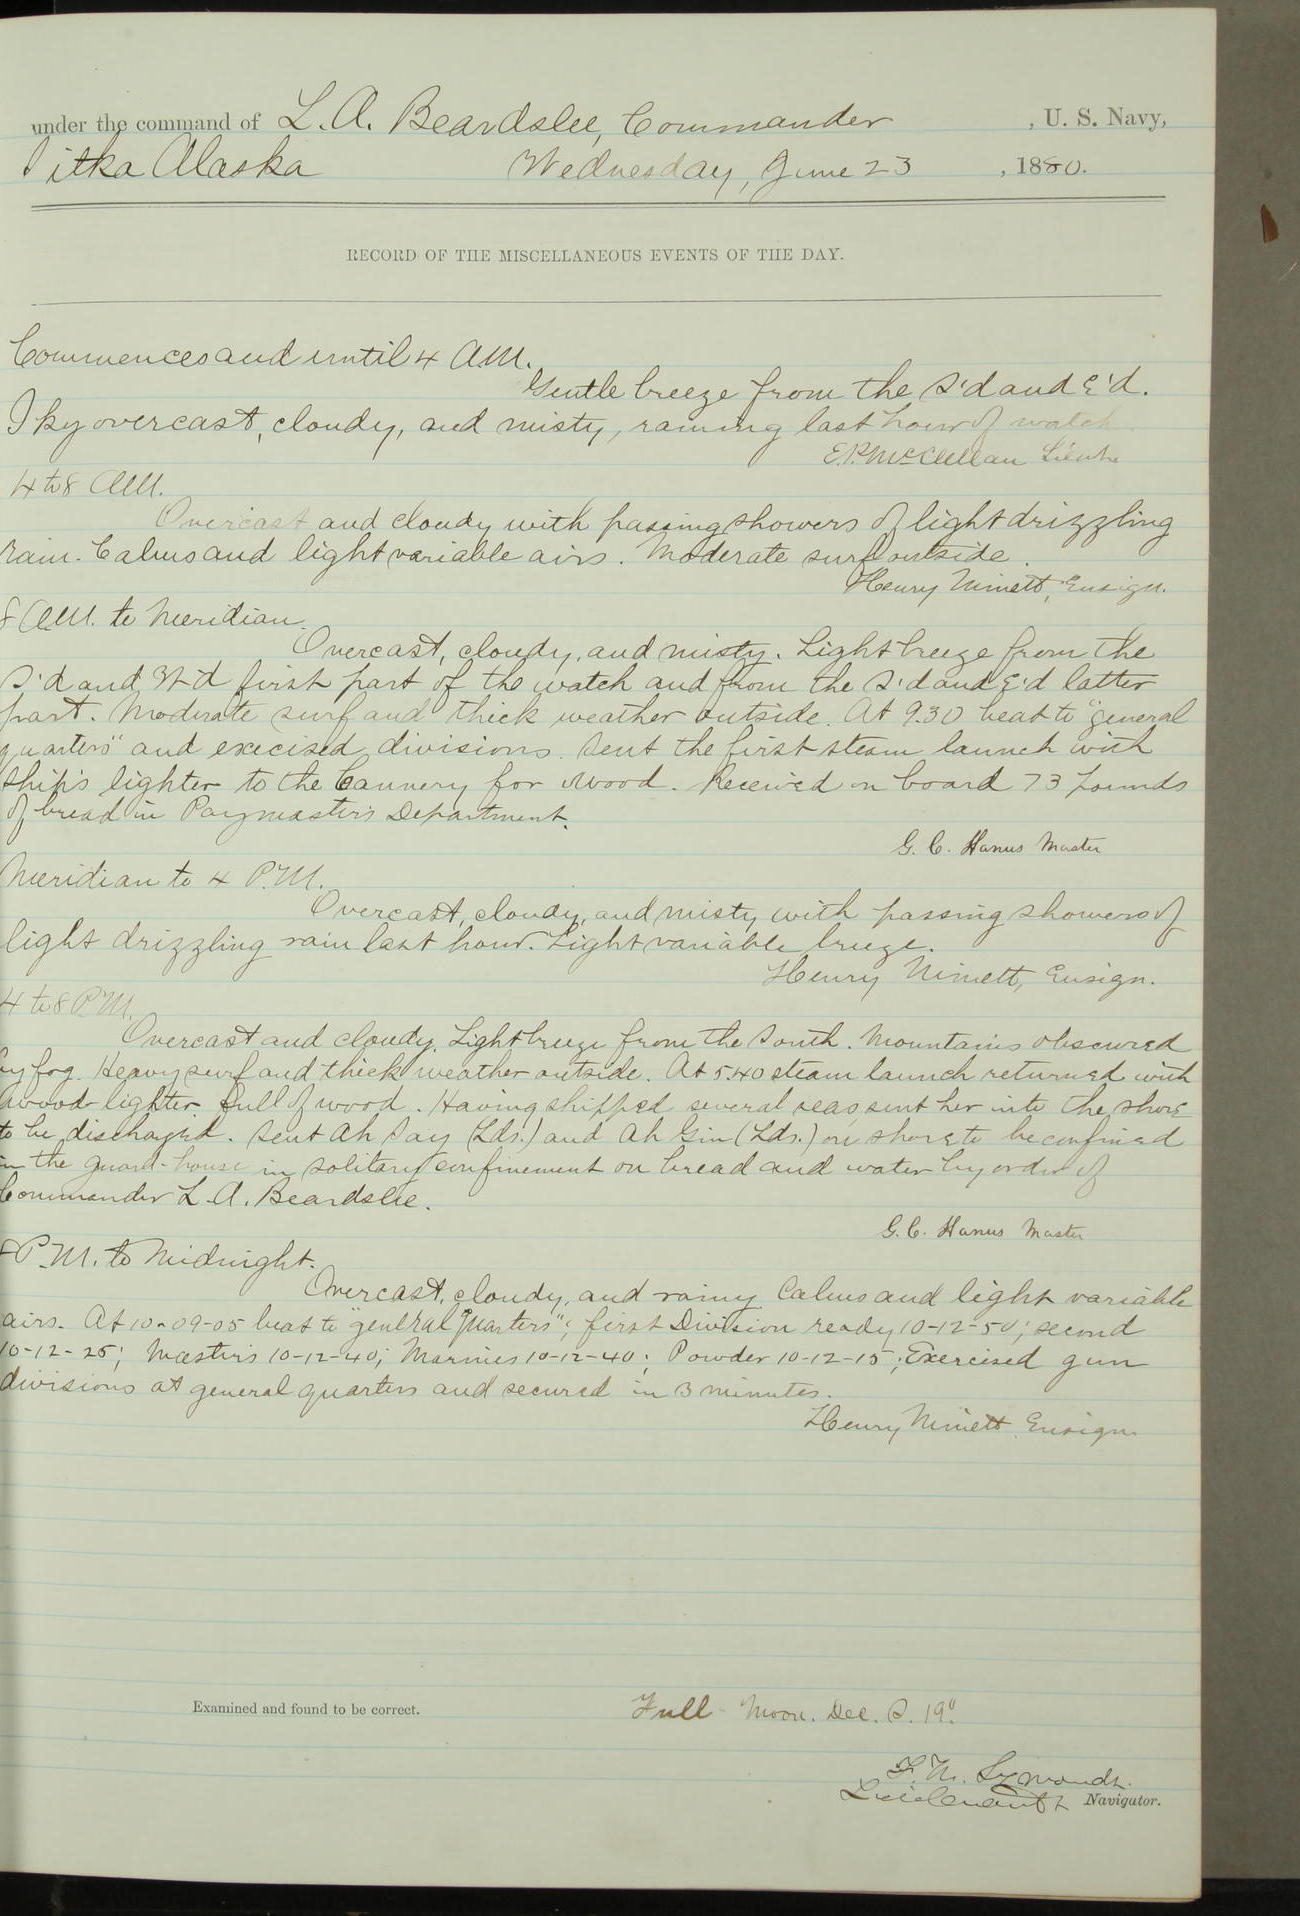 under the command of L. A. Beardslee, Commander , U. S. Navy,
Sitka Alaska Wednesday, June 23 , 1880.
RECORD OF THE MISCELLANEOUS EVENTS OF THE DAY.
Commences and until 4 A.M.
Gentle breeze from the S'd and E'd.
Sky overcast, cloudy, and misty, raining last hour of watch
E.P. McClellan Lieut.
4 to 8 A.M.
Overcast and cloudy with passing showers of light drizzling
rain. Calms and light variable airs. Moderate surf outside.
Henry Minett, Ensign.
8 A.M. to Meridian.
Overcast, cloudy, and misty. Light breeze from the
S'd and W'd first part of the watch and from the S'd and E'd latter
part. Moderate surf and thick weather outside. At 9.30 beat to "general
quarters" and execised divisions. Sent the first steam launch with
ship's lighter to the Cannery for wood. Received on board 73 pounds
of bread in Paymaster's Department.
G. C. Hanus Master
Meridian to 4 P.M.
Overcast, cloudy, and misty with passing showers of
light drizzling rain last hour. Light variable breeze.
Henry Minett, Ensign.
4 to 8 P.M.
Overcast and cloudy. Light breeze from the South. Mountains obscured
by fog. Heavy surf and thick weather outside. At 5.40 steam launch returned with
a wood-lighter full of wood. Having shipped several seas, sent her into the shore
to be discharged. Sent Ah Say (Lds.) and Ah Gin (Lds.) on shore to be confined
in the guard-house in solitary confinement on bread and water by order of
Commander L. A. Beardslee.
G. C. Hanus Master
8 P.M. to Midnight.
Overcast, cloudy, and rainy Calms and light variable
airs. At 10-09-05 beat to "general quarters"; first Division ready 10-12-50; second
10-12-25; Master's 10-12-40; Marines 10-12-40; Powder 10-12-15; Exercised gun
divisions at general quarters and secured in 3 minutes.
Henry Minett Ensign
Examined and found to be correct. Full Moon. Dec. S. 19°.
F. M. Symonds.
Lieutenant & Navigator.